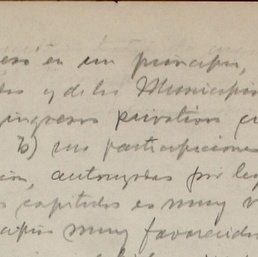 en un principio,
y de los Municipios
ingresos privativos
b) sus participaciones
autorizadas por ley
capitulos es muy
muy favorecidos